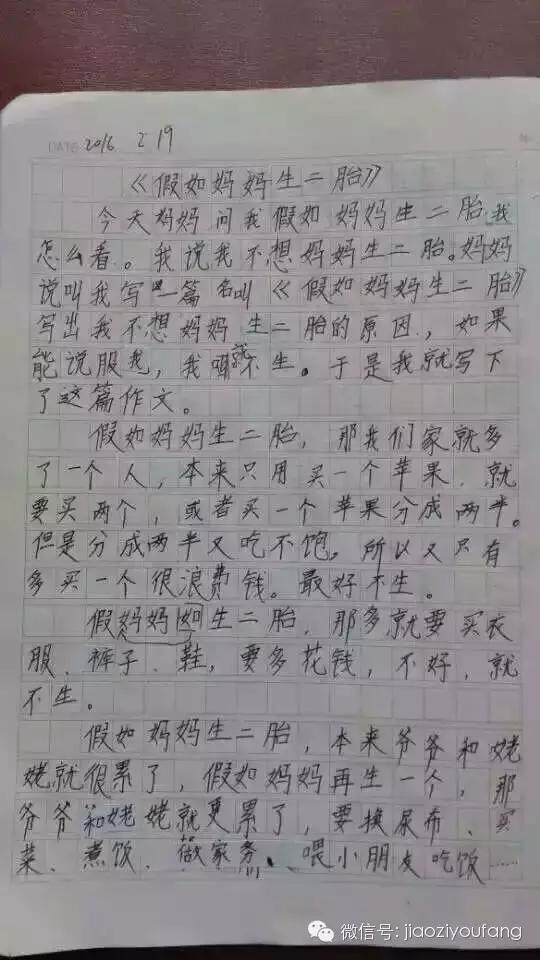 DATE 2016 2 19
《假如妈妈生二胎》
今天妈妈问我假如妈妈生二胎,我
怎么看。我说我不想妈妈生二胎。妈妈
说叫我写一篇名叫《假如妈妈生二胎》
写出我不想妈妈生二胎的原因,如果
能说服我,我就不生。于是我就写下
了这篇作文。
假如妈妈生二胎,那我们家就多
了一个人,本来只用买一个苹果,就
要买两个,或者买一个苹果分成两半。
但是分成两半又吃不饱,所以又只有
多买一个很浪费钱。最好不生。
假妈妈如生二胎,那多就要买衣
服、裤子、鞋,要多花钱,不好,就
不生。
假如妈妈生二胎,本来爷爷和姥
姥就很累了,假如妈妈再生一个,那
爷爷和姥姥就更累了,要换尿布、买
菜、煮饭、做家务、喂小朋友吃饭……
微信号: jiaoziyoufang